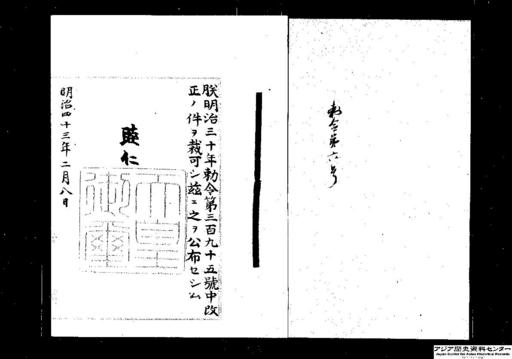 勅令第六号
朕明治三十年勅令第三百九十五號中改
正ノ件ヲ裁可シ茲ニ之ヲ公布セシム
睦仁
天皇御璽
明治四十三年二月八日
アジア歴史資料センター
Japan Center for Asian Historical Records